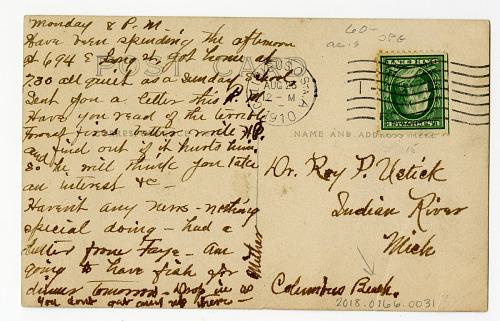 Monday 8 P.M.
Have been spending the afternoon
at 694 E Long st. Got home at
730 all quiet as a Sunday School
Sent you a letter this P.M.
Have you read of the terrible
forest fires better write
and find out if it hurts him.
so he will think you take
an interest &c -
Haven't any news - nothing
special doing - had a
letter from Faye - Am
going to have fish for
dinner tomorrow - Drop in as
you don't get any up there -
Mother
POST CARD
AUG 23
12 - M
1910
60-
NAME AND ADDRESS HERE
Dr. Roy P. Ustick
Indian River
Mich
Columbus Beach.
2018.0166.0031